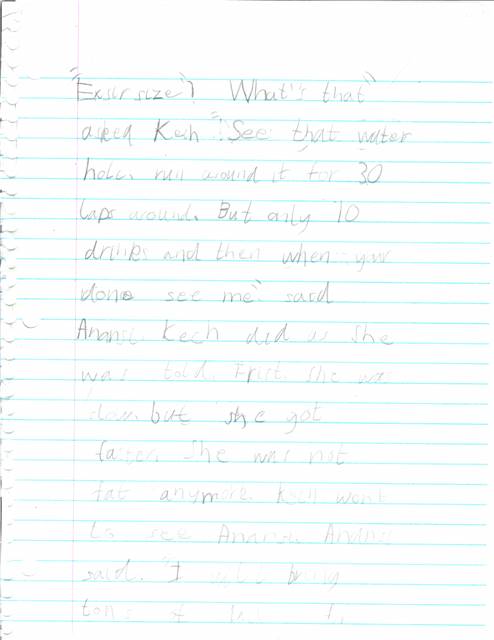 "Exsirsize"! What's that"
asked Kech "See that water
hole, run around it for 30
laps around. But only 10
drinks and then when your
done see me" said
Anansi. Kech did as she
was told. Frist she was
slow. but she got
faster. She was not
fat anymore. Kech went
to see Anansi. Anansi
said. "I will bring
tons of